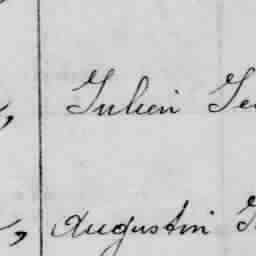 Julien
Augustin